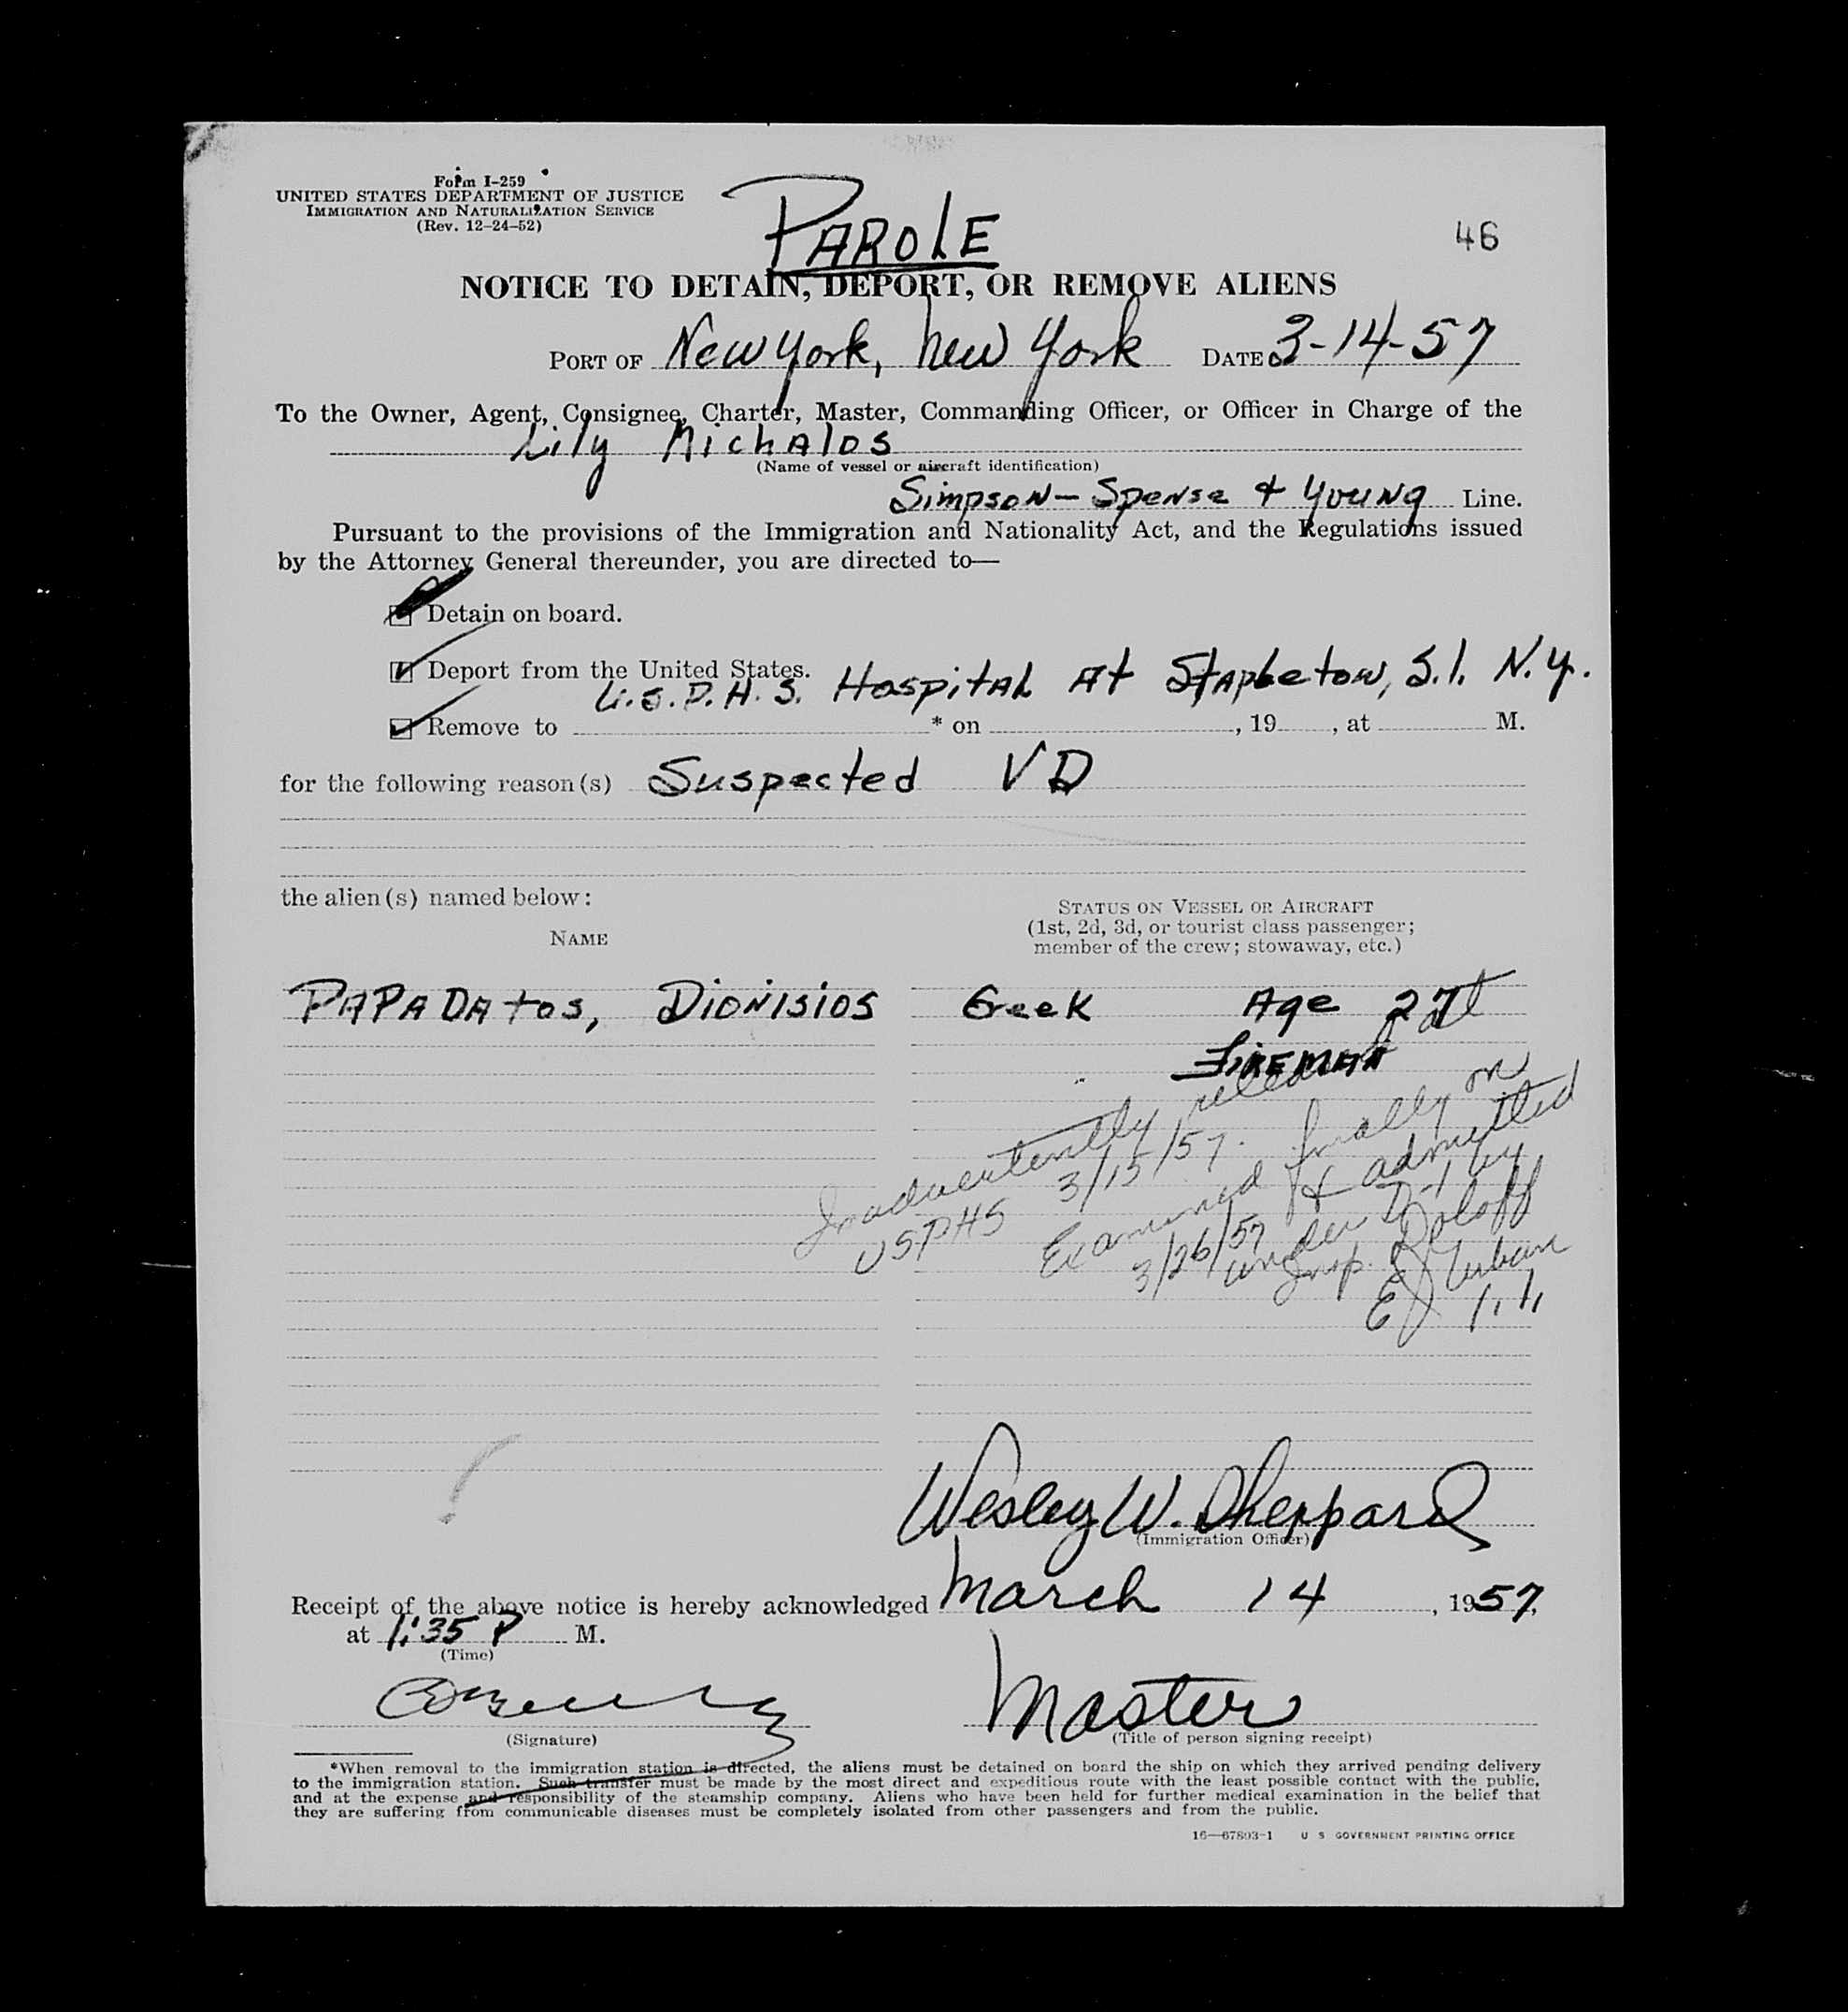 Form I-259
UNITED STATES DEPARTMENT OF JUSTICE
IMMIGRATION AND NATURALIZATION SERVICE
(Rev. 12-24-52)
PAROLE
46
NOTICE TO DETAIN, DEPORT, OR REMOVE ALIENS
PORT OF New York, New York DATE 3-14-57
To the Owner, Agent, Consignee, Charter, Master, Commanding Officer, or Officer in Charge of the
Lily Michalos
(Name of vessel or aircraft identification)
Simpson-Spense & Young Line.
Pursuant to the provisions of the Immigration and Nationality Act, and the Regulations issued
by the Attorney General thereunder, you are directed to—
Detain on board.
Deport from the United States.
U.S.P.H.S. Hospital At Stapleton, S.I. N.Y.
Remove to * on , 19 , at M.
for the following reason(s) Suspected VD
the alien(s) named below:
NAME
STATUS ON VESSEL OR AIRCRAFT
(1st, 2d, 3d, or tourist class passenger;
member of the crew; stowaway, etc.)
PAPADAtos, Dionisios Greek Age 27
FIREMAN
Inadvertently released at
USPHS 3/15/57.
Examined finally on
3/26/57 & admitted
under D-1 by
Insp.
EJ Urban
Wesley W. Sheppard
(Immigration Officer)
Receipt of the above notice is hereby acknowledged March 14, 1957,
at 1:35 P M.
(Time)
Master
(Signature)
(Title of person signing receipt)
*When removal to the immigration station is directed, the aliens must be detained on board the ship on which they arrived pending delivery
to the immigration station. Such transfer must be made by the most direct and expeditious route with the least possible contact with the public,
and at the expense and responsibility of the steamship company. Aliens who have been held for further medical examination in the belief that
they are suffering from communicable diseases must be completely isolated from other passengers and from the public.
16—67803-1 U S GOVERNMENT PRINTING OFFICE